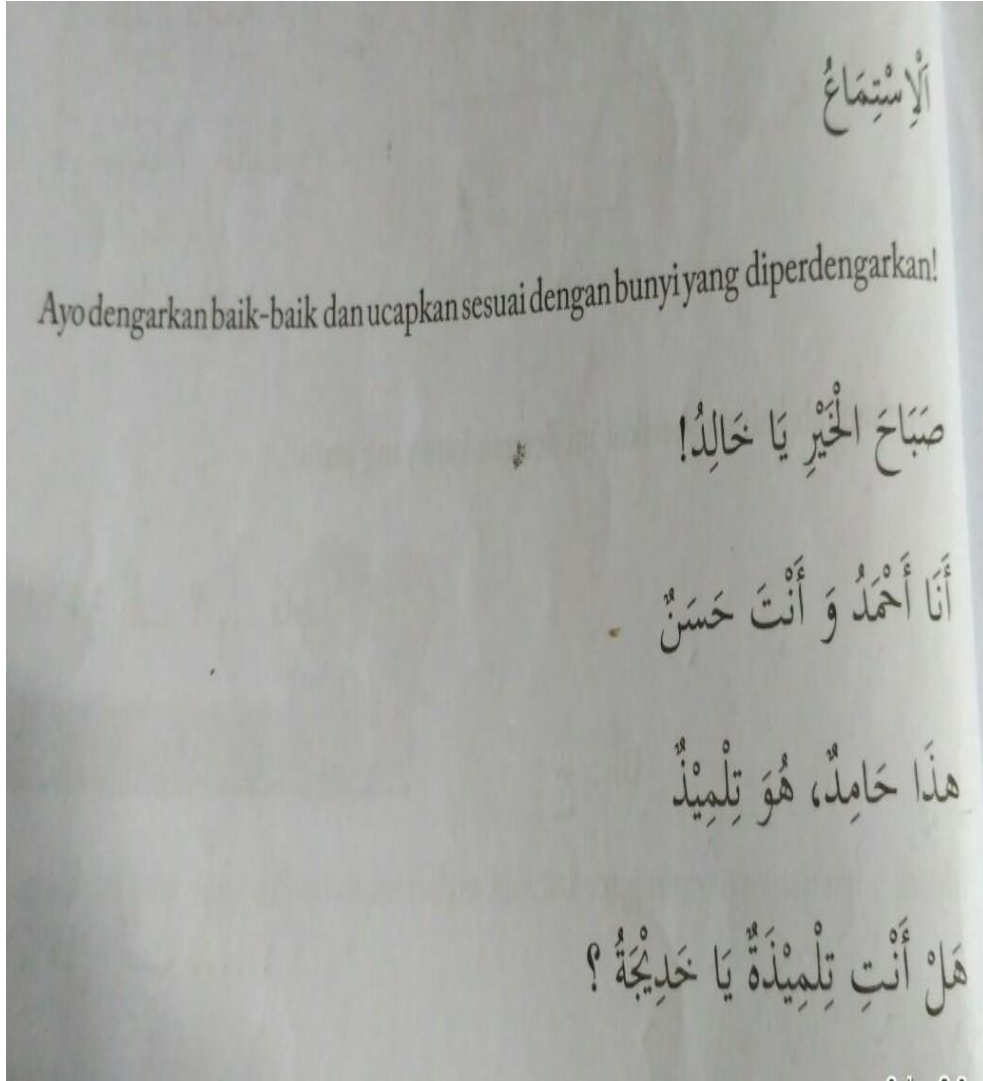 اَلْاِسْتِمَاعُ
Ayo dengarkan baik-baik dan ucapkan sesuai dengan bunyi yang diperdengarkan!
صَبَاحَ الْخَيْرِ يَا خَالِدُ!
أَنَا أَحْمَدُ وَ أَنْتَ حَسَنٌ
هذَا حَامِدٌ، هُوَ تِلْمِيْذٌ
هَلْ أَنْتِ تِلْمِيْذَةٌ يَا خَدِيْجَةُ ؟